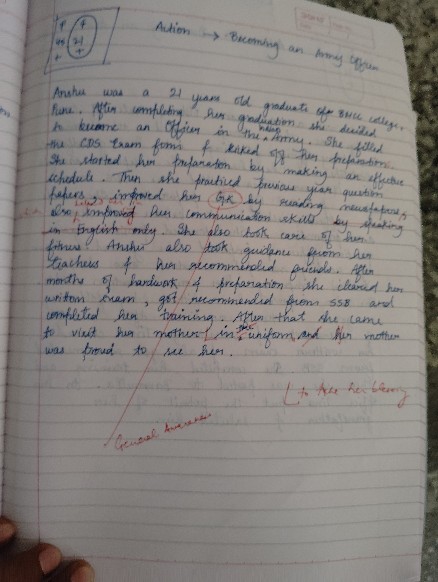 Action → Becoming an Army Officer
Anshu was a 21 years old graduate of BMCC college,
After completing her graduation she decided
to become an Officer in the Army. She filled
the CDS exam form & kicked off her preparation.
She started her preparation by making an effective
schedule. Then she practiced previous year question
papers, improved her GK by reading newspapers,
also improved her communication skills by speaking
in English only. She also took care of her
fitness. Anshu also took guidance from her
teachers & her recommended friends. After
months of hardwork & preparation she cleared her
written exam, got recommended from SSB and
completed her training. After that she came
to visit her mother in the uniform and her mother
was proud to see her.
to take her blessing
General Awareness